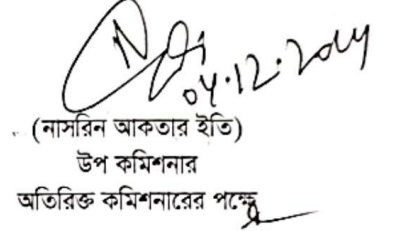 04.12.2024
(নাসরিন আকতার ইতি)
উপ কমিশনার
অতিরিক্ত কমিশনারের পক্ষে